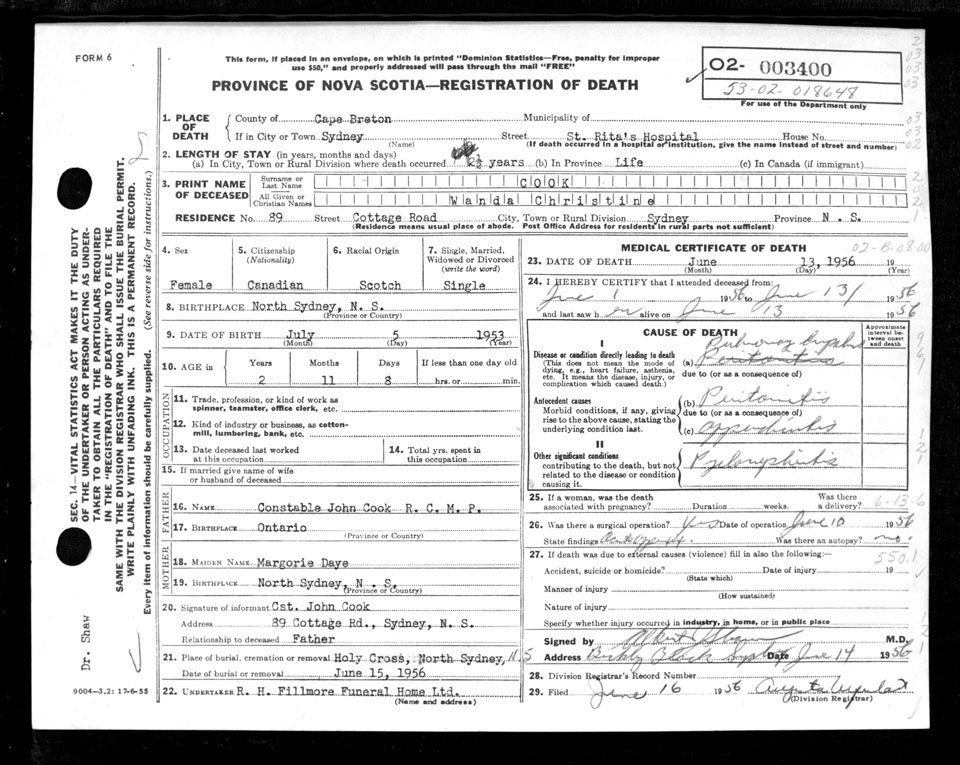 FORM 6
This form, if placed in an envelope, on which is printed "Dominion Statistics—Free, penalty for improper
use $50," and properly addressed will pass through the mail "FREE"
PROVINCE OF NOVA SCOTIA—REGISTRATION OF DEATH
02- 003400
53-02-018648
For use of the Department only
1. PLACE OF DEATH
County of Cape Breton Municipality of
If in City or Town Sydney Street St. Rita's Hospital House No.
(Name) (If death occurred in a hospital or institution, give the name instead of street and number)
2. LENGTH OF STAY (in years, months and days)
(a) In City, Town or Rural Division where death occurred 2½ years (b) In Province Life (c) In Canada (if immigrant)
3. PRINT NAME OF DECEASED
Surname or Last Name COOK
All Given or Christian Names Wanda Christine
RESIDENCE No. 89 Street Cottage Road City, Town or Rural Division Sydney Province N. S.
(Residence means usual place of abode. Post Office Address for residents in rural parts not sufficient)
4. Sex
Female
5. Citizenship
(Nationality)
Canadian
6. Racial Origin
Scotch
7. Single, Married, Widowed or Divorced
(write the word)
Single
8. BIRTHPLACE North Sydney, N. S.
(Province or Country)
9. DATE OF BIRTH July 5 1953
(Month) (Day) (Year)
10. AGE in
Years Months Days If less than one day old
2 11 8 hrs. or min.
OCCUPATION
11. Trade, profession, or kind of work as
spinner, teamster, office clerk, etc.
12. Kind of industry or business, as cotton-
mill, lumbering, bank, etc.
13. Date deceased last worked
at this occupation
14. Total yrs. spent in
this occupation
15. If married give name of wife
or husband of deceased
FATHER
16. NAME Constable John Cook R. C. M. P.
17. BIRTHPLACE Ontario
(Province or Country)
MOTHER
18. MAIDEN NAME Margorie Daye
19. BIRTHPLACE North Sydney, N. S.
(Province or Country)
20. Signature of informant Cst. John Cook
Address 89 Cottage Rd., Sydney, N. S.
Relationship to deceased Father
21. Place of burial, cremation or removal Holy Cross, North Sydney, N. S
Date of burial or removal June 15, 1956
22. UNDERTAKER R. H. Fillmore Funeral Home Ltd.
(Name and address)
MEDICAL CERTIFICATE OF DEATH
02-B-08-00
23. DATE OF DEATH June 13, 1956 19
(Month) (Day) (Year)
24. I HEREBY CERTIFY that I attended deceased from:
June 1 1956 to June 13/ 1956
and last saw her alive on June 13 1956
CAUSE OF DEATH
Approximate interval between onset and death
I
Disease or condition directly leading to death
(This does not mean the mode of
dying, e.g., heart failure, asthenia,
etc. It means the disease, injury, or
complication which caused death.)
Pulmonary
(a) Peritonitis
due to (or as a consequence of)
Antecedent causes
Morbid conditions, if any, giving
rise to the above cause, stating the
underlying condition last.
(b) Peritonitis
due to (or as a consequence of)
(c) appendicitis
II
Other significant conditions
contributing to the death, but not
related to the disease or condition
causing it.
Pyelonephritis
25. If a woman, was the death
associated with pregnancy? Duration weeks. Was there a delivery?
6-13-6
26. Was there a surgical operation? Yes Date of operation June 10 1956
State findings Was there an autopsy? no.
27. If death was due to external causes (violence) fill in also the following:—
550.1
Accident, suicide or homicide? Date of injury 19
(State which)
Manner of injury
(How sustained)
Nature of injury
Specify whether injury occurred in industry, in home, or in public place
Signed by M.D.
Address Block Sydney Date June 14 1956
28. Division Registrar's Record Number
29. Filed June 16 1956
(Division Registrar)
SEC. 14—VITAL STATISTICS ACT MAKES IT THE DUTY
OF THE UNDERTAKER OR PERSON ACTING AS UNDER-
TAKER TO OBTAIN ALL THE PARTICULARS REQUIRED
IN THE "REGISTRATION OF DEATH" AND TO FILE THE
SAME WITH THE DIVISION REGISTRAR WHO SHALL ISSUE THE BURIAL PERMIT.
WRITE PLAINLY WITH UNFADING INK. THIS IS A PERMANENT RECORD.
Every item of information should be carefully supplied. (See reverse side for instructions.)
Dr. Shaw
9004—3.2: 17-6-55